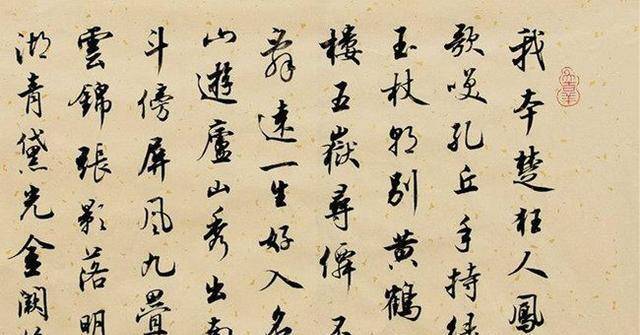 我本楚狂人鳳
歌咲孔丘手持綠
玉杖朝別黃鶴
樓五嶽尋僊不
辭遠一生好入名
山遊廬山秀出南
斗傍屏風九疊
雲錦張影落明
湖青黛光金闕